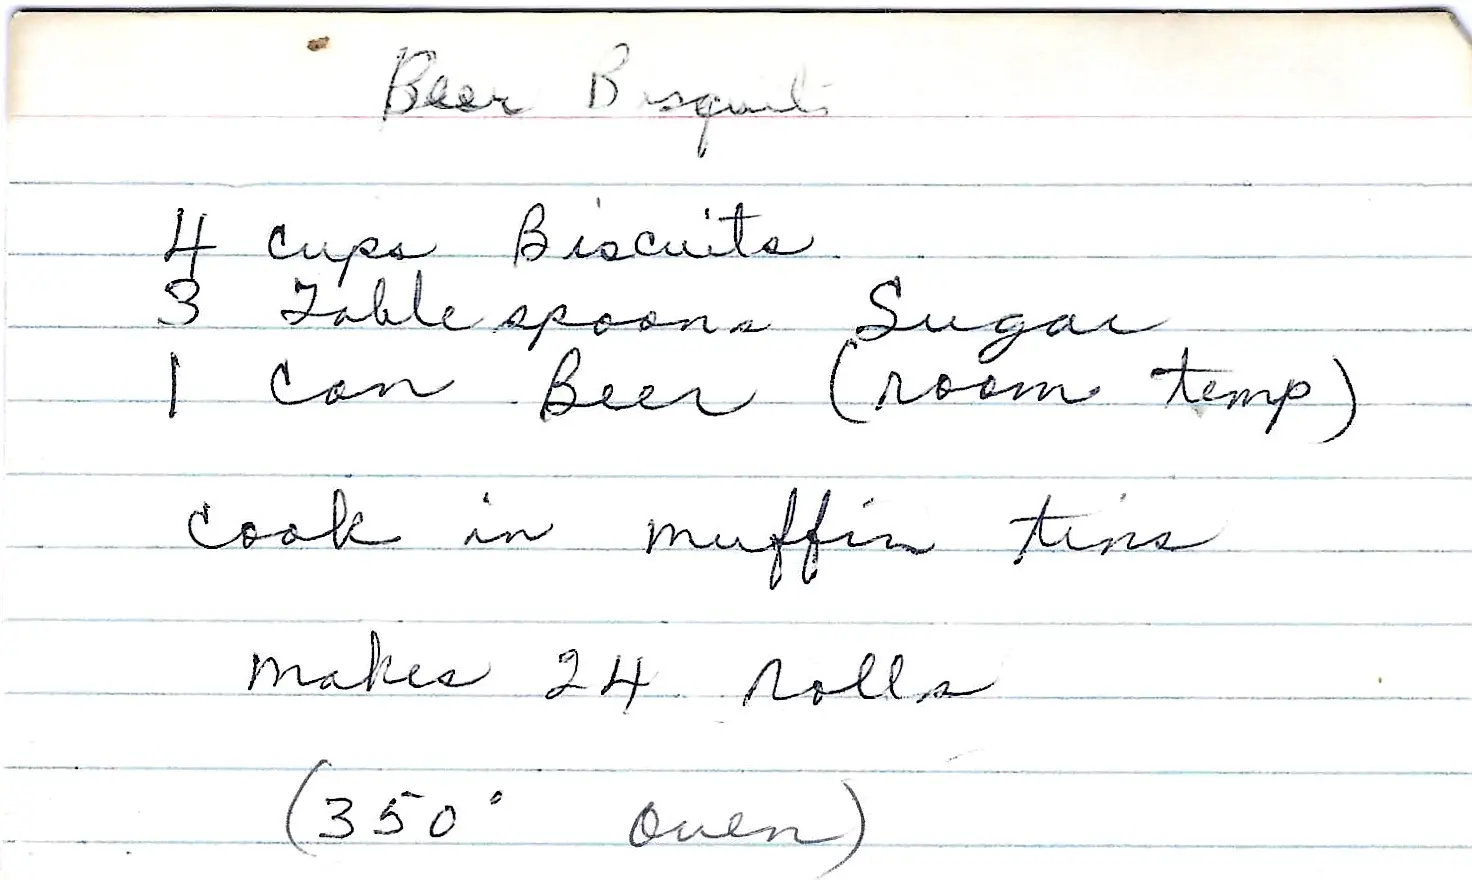 Beer Bisquits
4 cups Biscuits
3 Tablespoons Sugar
1 Can Beer (room temp)
cook in muffin tins
makes 24 rolls
(350° oven)